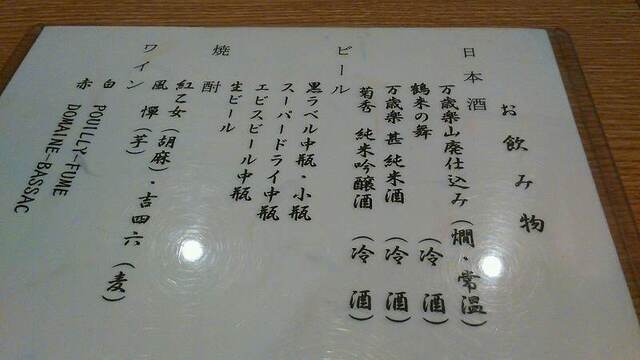 お飲み物
日本酒
万歳楽山廃仕込み(燗・常温)
鶴来の舞 (冷酒)
万歳楽 甚 純米酒 (冷酒)
菊秀 純米吟醸酒 (冷酒)
ビール
黒ラベル中瓶・小瓶
スーパードライ中瓶
エビスビール中瓶
生ビール
焼酎
紅乙女(胡麻)・吉四六(麦)
風憚(芋)
ワイン
白 POUILLY-FUME
赤 DOMAINE-BASSAC